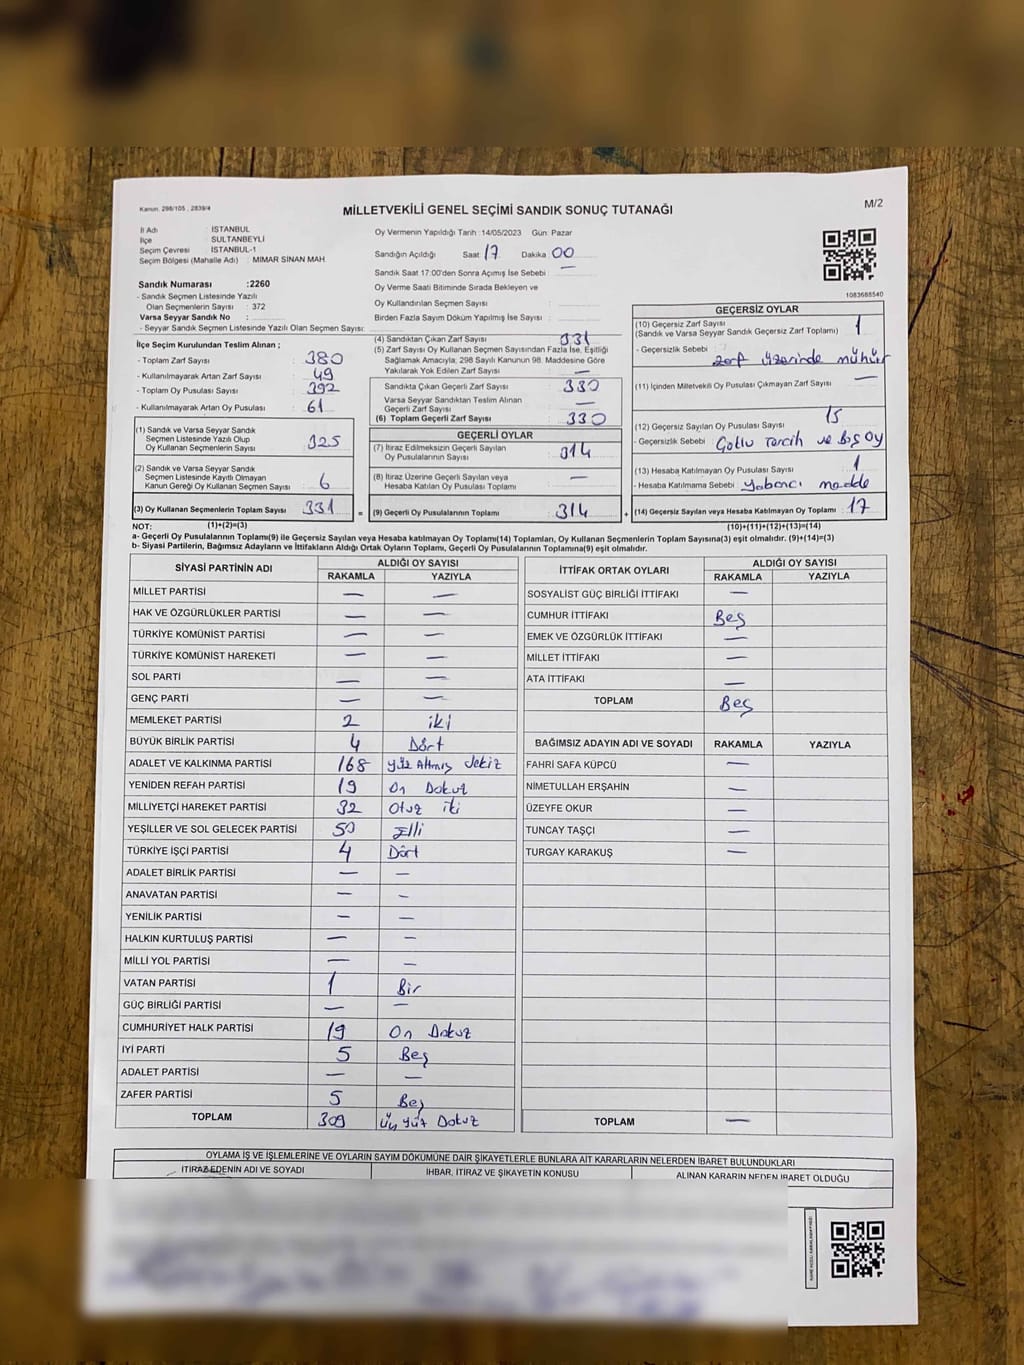 Kanun. 298/105 , 2839/4
MİLLETVEKİLİ GENEL SEÇİMİ SANDIK SONUÇ TUTANAĞI
M/2
İl Adı İSTANBUL
İlçe SULTANBEYLİ
Seçim Çevresi İSTANBUL-1
Seçim Bölgesi (Mahalle Adı) : MİMAR SİNAN MAH.
Sandık Numarası :2260
- Sandık Seçmen Listesinde Yazılı
Olan Seçmenlerin Sayısı : 372
Varsa Seyyar Sandık No :
- Seyyar Sandık Seçmen Listesinde Yazılı Olan Seçmen Sayısı:
Oy Vermenin Yapıldığı Tarih :14/05/2023 Gün: Pazar
Sandığın Açıldığı Saat 17 Dakika 00
Sandık Saat 17:00'den Sonra Açılmış İse Sebebi : —
Oy Verme Saati Bitiminde Sırada Bekleyen ve
Oy Kullandırılan Seçmen Sayısı :
Birden Fazla Sayım Döküm Yapılmış İse Sayısı :
1083688540
İlçe Seçim Kurulundan Teslim Alınan ;
- Toplam Zarf Sayısı : 380
- Kullanılmayarak Artan Zarf Sayısı : 49
- Toplam Oy Pusulası Sayısı : 392
- Kullanılmayarak Artan Oy Pusulası : 61
(1) Sandık ve Varsa Seyyar Sandık
Seçmen Listesinde Yazılı Olup
Oy Kullanan Seçmenlerin Sayısı : 325
(2) Sandık ve Varsa Seyyar Sandık
Seçmen Listesinde Kayıtlı Olmayan
Kanun Gereği Oy Kullanan Seçmen Sayısı : 6
(3) Oy Kullanan Seçmenlerin Toplam Sayısı : 331 =
(4) Sandıktan Çıkan Zarf Sayısı : 331
(5) Zarf Sayısı Oy Kullanan Seçmen Sayısından Fazla İse, Eşitliği
Sağlamak Amacıyla; 298 Sayılı Kanunun 98. Maddesine Göre
Yakılarak Yok Edilen Zarf Sayısı : —
Sandıkta Çıkan Geçerli Zarf Sayısı : 330
Varsa Seyyar Sandıktan Teslim Alınan
Geçerli Zarf Sayısı : —
(6) Toplam Geçerli Zarf Sayısı : 330
GEÇERLİ OYLAR
(7) İtiraz Edilmeksizin Geçerli Sayılan
Oy Pusulalarının Sayısı : 314
(8) İtiraz Üzerine Geçerli Sayılan veya
Hesaba Katılan Oy Pusulaları Toplamı : —
(9) Geçerli Oy Pusulalarının Toplamı : 314 +
GEÇERSİZ OYLAR
(10) Geçersiz Zarf Sayısı : 1
(Sandık ve Varsa Seyyar Sandık Geçersiz Zarf Toplamı)
- Geçersizlik Sebebi : Zarf üzerinde mühür
(11) İçinden Milletvekili Oy Pusulası Çıkmayan Zarf Sayısı : —
(12) Geçersiz Sayılan Oy Pusulası Sayısı : 15
- Geçersizlik Sebebi : Çoklu Tercih ve Boş Oy
(13) Hesaba Katılmayan Oy Pusulası Sayısı : 1
- Hesaba Katılmama Sebebi : Yabancı madde
(14) Geçersiz Sayılan veya Hesaba Katılmayan Oy Toplamı : 17
NOT: (1)+(2)=(3) (10)+(11)+(12)+(13)=(14)
a- Geçerli Oy Pusulalarının Toplamı(9) ile Geçersiz Sayılan veya Hesaba Katılmayan Oy Toplamı(14) Toplamları, Oy Kullanan Seçmenlerin Toplam Sayısına(3) eşit olmalıdır. (9)+(14)=(3)
b- Siyasi Partilerin, Bağımsız Adayların ve İttifakların Aldığı Ortak Oyların Toplamı, Geçerli Oy Pusulalarının Toplamına(9) eşit olmalıdır.
SİYASİ PARTİNİN ADI ALDIĞI OY SAYISI
RAKAMLA YAZIYLA
MİLLET PARTİSİ — —
HAK VE ÖZGÜRLÜKLER PARTİSİ — —
TÜRKİYE KOMÜNİST PARTİSİ — —
TÜRKİYE KOMÜNİST HAREKETİ — —
SOL PARTİ — —
GENÇ PARTİ — —
MEMLEKET PARTİSİ 2 iki
BÜYÜK BİRLİK PARTİSİ 4 Dört
ADALET VE KALKINMA PARTİSİ 168 Yüz Altmış Sekiz
YENİDEN REFAH PARTİSİ 19 On Dokuz
MİLLİYETÇİ HAREKET PARTİSİ 32 Otuz iki
YEŞİLLER VE SOL GELECEK PARTİSİ 50 Elli
TÜRKİYE İŞÇİ PARTİSİ 4 Dört
ADALET BİRLİK PARTİSİ — —
ANAVATAN PARTİSİ — —
YENİLİK PARTİSİ — —
HALKIN KURTULUŞ PARTİSİ — —
MİLLİ YOL PARTİSİ — —
VATAN PARTİSİ 1 Bir
GÜÇ BİRLİĞİ PARTİSİ — —
CUMHURİYET HALK PARTİSİ 19 On Dokuz
İYİ PARTİ 5 Beş
ADALET PARTİSİ — —
ZAFER PARTİSİ 5 Beş
TOPLAM 309 Üç Yüz Dokuz
İTTİFAK ORTAK OYLARI ALDIĞI OY SAYISI
RAKAMLA YAZIYLA
SOSYALİST GÜÇ BİRLİĞİ İTTİFAKI —
CUMHUR İTTİFAKI Beş
EMEK VE ÖZGÜRLÜK İTTİFAKI —
MİLLET İTTİFAKI —
ATA İTTİFAKI —
TOPLAM Beş
BAĞIMSIZ ADAYIN ADI VE SOYADI RAKAMLA YAZIYLA
FAHRİ SAFA KÜPCÜ —
NİMETULLAH ERŞAHİN —
ÜZEYFE OKUR —
TUNCAY TAŞÇI —
TURGAY KARAKUŞ —
TOPLAM —
OYLAMA İŞ VE İŞLEMLERİNE VE OYLARIN SAYIM DÖKÜMÜNE DAİR ŞİKAYETLERLE BUNLARA AİT KARARLARIN NELERDEN İBARET BULUNDUKLARI
İTİRAZ EDENİN ADI VE SOYADI İHBAR, İTİRAZ VE ŞİKAYETİN KONUSU ALINAN KARARIN NEDEN İBARET OLDUĞU